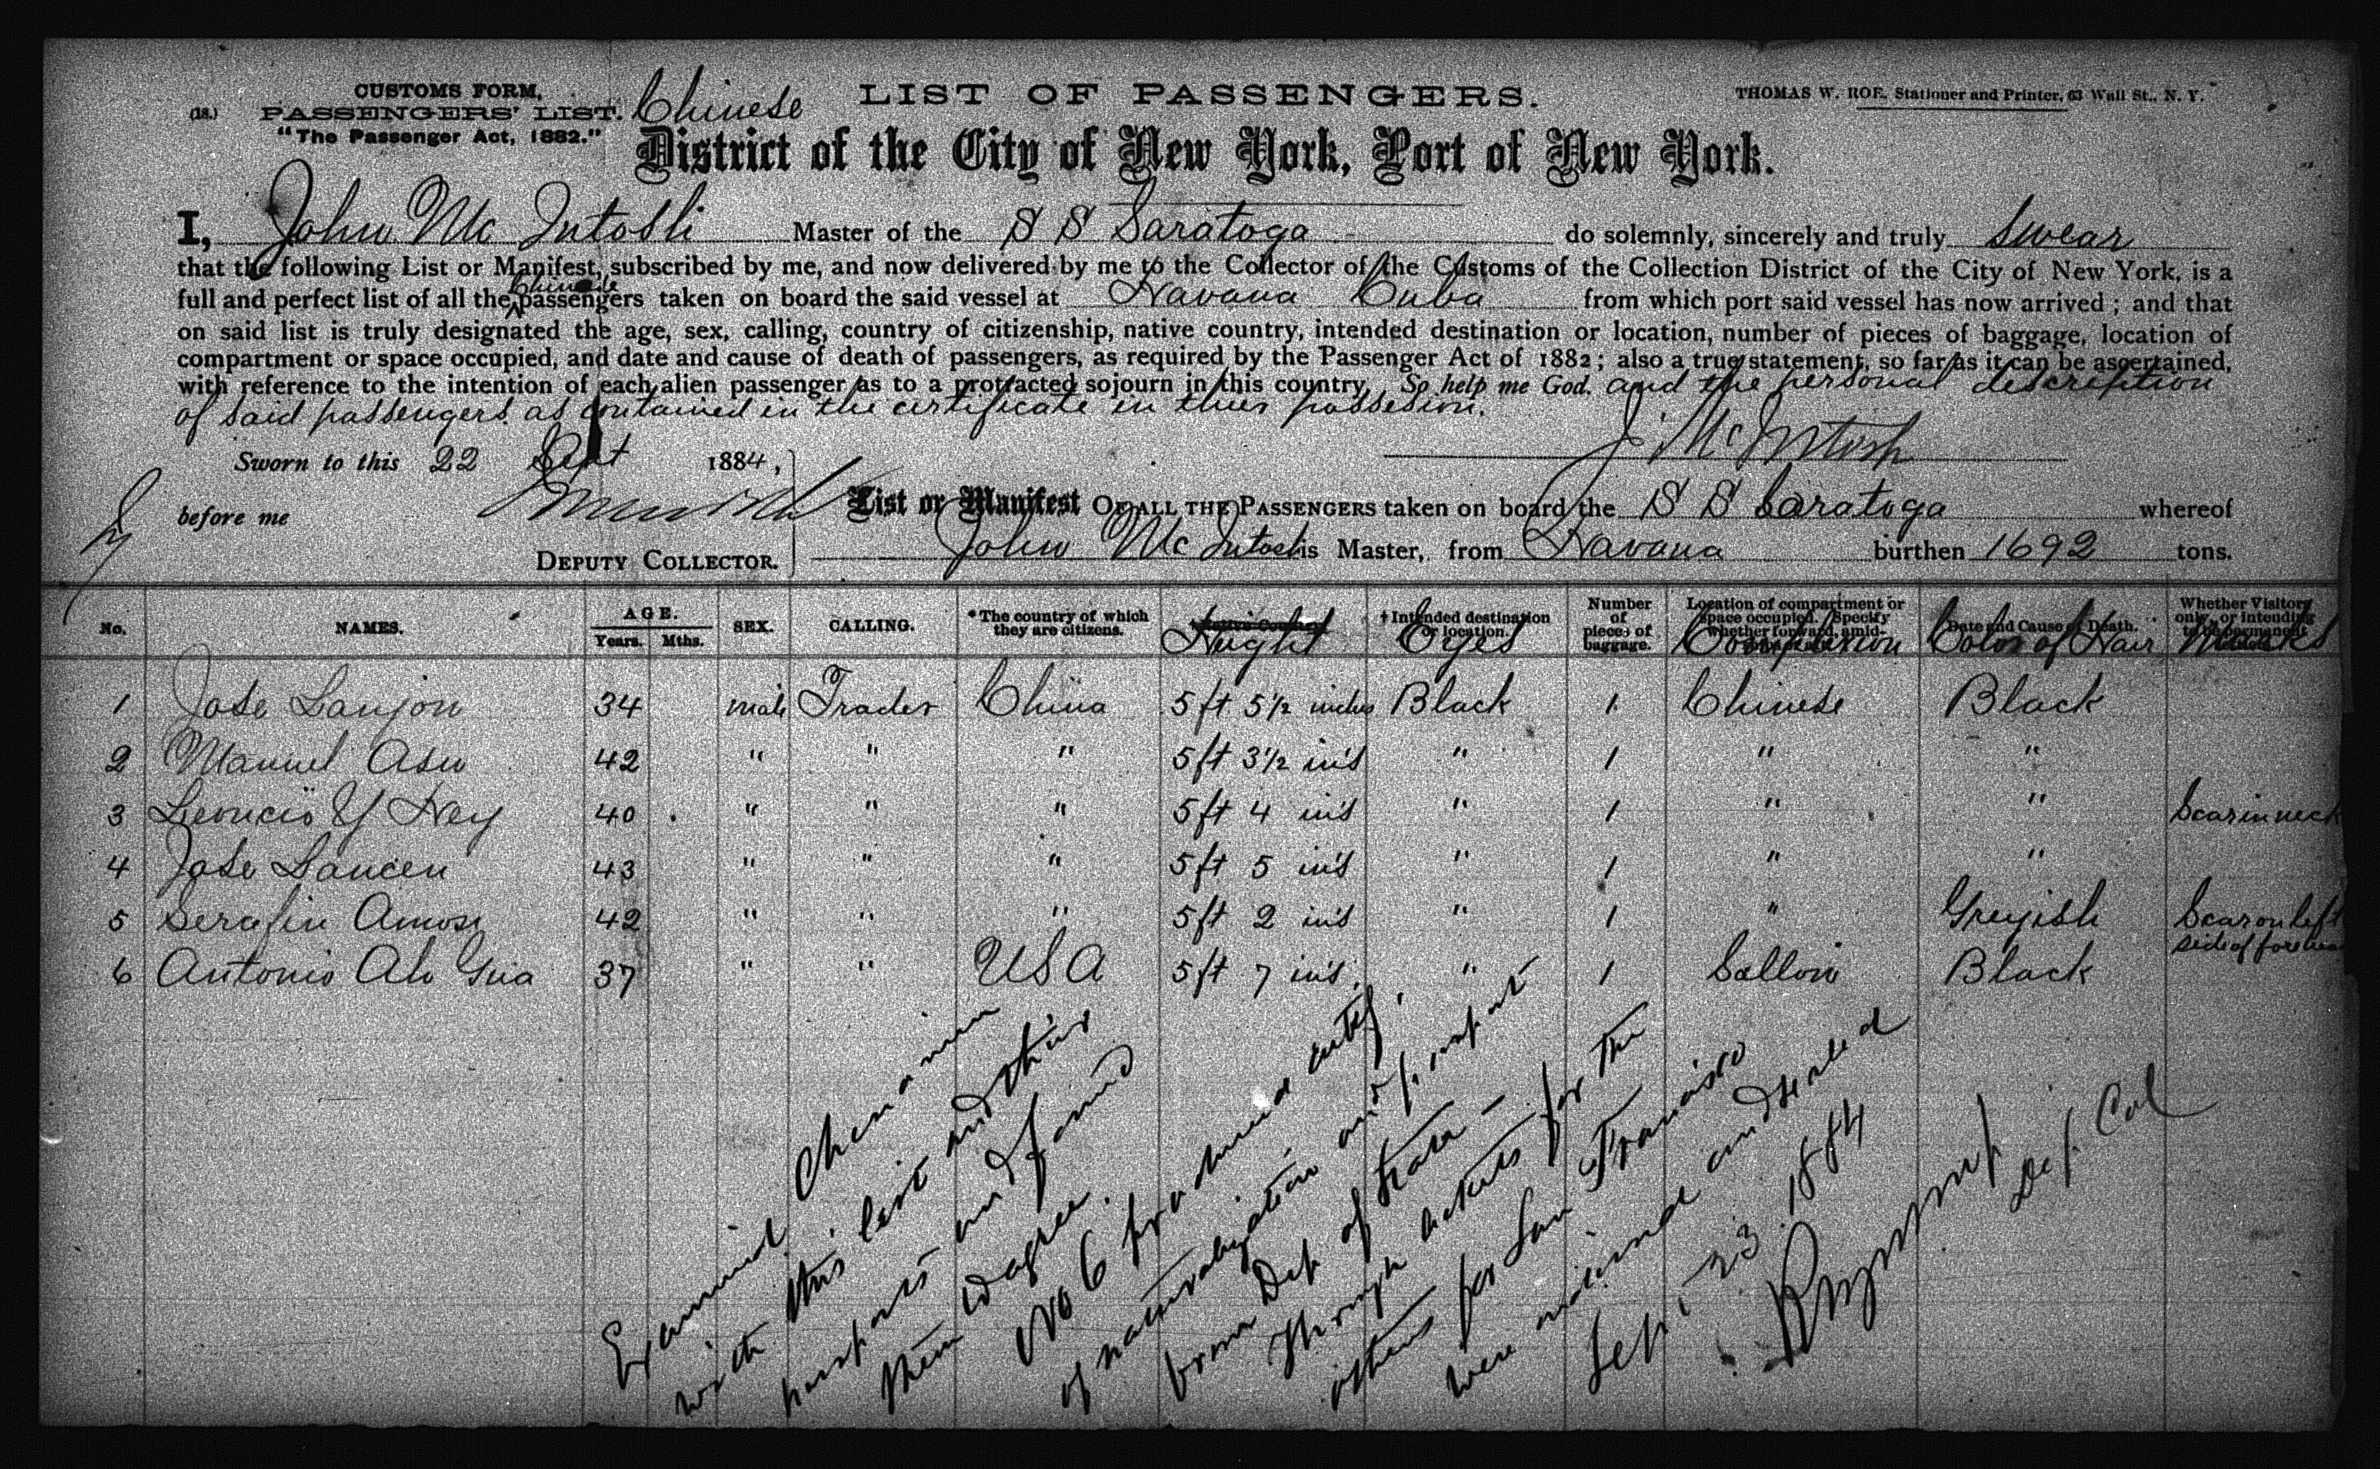 CUSTOMS FORM,
(18.) PASSENGERS' LIST.
"The Passenger Act, 1882."
Chinese LIST OF PASSENGERS.
THOMAS W. ROE, Stationer and Printer, 63 Wall St., N. Y.
District of the City of New York, Port of New York.
I, John McIntosh Master of the S S Saratoga do solemnly, sincerely and truly swear
that the following List or Manifest, subscribed by me, and now delivered by me to the Collector of the Customs of the Collection District of the City of New York, is a
full and perfect list of all the Chinese passengers taken on board the said vessel at Havana Cuba from which port said vessel has now arrived; and that
on said list is truly designated the age, sex, calling, country of citizenship, native country, intended destination or location, number of pieces of baggage, location of
compartment or space occupied, and date and cause of death of passengers, as required by the Passenger Act of 1882; also a true statement, so far as it can be ascertained,
with reference to the intention of each alien passenger as to a protracted sojourn in this country, So help me God. and the personal description
of said passengers as contained in the certificate in their possesion.
J McIntosh
Sworn to this 22 Sept 1884,
before me
DEPUTY COLLECTOR.
List or Manifest OF ALL THE PASSENGERS taken on board the S S Saratoga whereof
John McIntosh is Master, from Havana burthen 1692 tons.
No. NAMES. AGE. Years. Mths. SEX. CALLING. *The country of which they are citizens. Height †Intended destination or location. Eyes Number of pieces of baggage. Location of compartment or space occupied. Specify whether forward, amid- Complexion Date and Cause of Death. Color of Hair Whether Visitors only, or intending to be permanent Marks
1 Jose Lanjon 34 male Trader China 5 ft 5½ inches Black 1 Chinese Black
2 Manuel Asu 42 " " " 5 ft 3½ in's " 1 " "
3 Leoncio Y Hey 40 " " " 5 ft 4 in's " 1 " " Scar in neck
4 Jose Lancen 43 " " " 5 ft 5 in's " 1 " "
5 Serafin Amos 42 " " " 5 ft 2 in's " 1 " Greyish Scar on left
side of forehead
6 Antonio Ah Gua 37 " " USA 5 ft 7 in's " 1 Sallow Black
Examined Chinamen
with this list and their
passports and found
them to agree.
No 6 produced certf.
of naturalization and passport
from Dep of State –
Through tickets for the
others for San Francisco
were examined and sealed
Sept 23 1884
Dep. Col